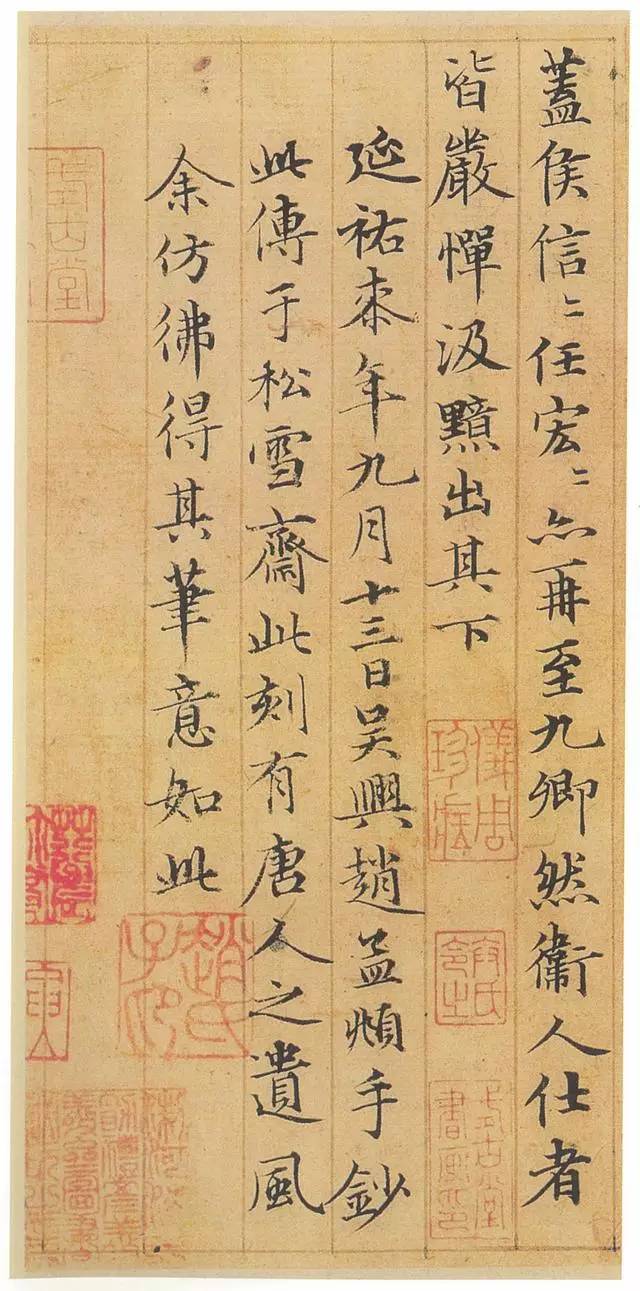 蓋侯信〻任宏〻亦再至九卿然衞人仕者
皆嚴憚汲黯出其下
延祐桼年九月十三日吳興趙孟頫手鈔
此傳于松雪齋此刻有唐人之遺風
余仿彿得其筆意如此
儀周珍藏
趙氏子昂